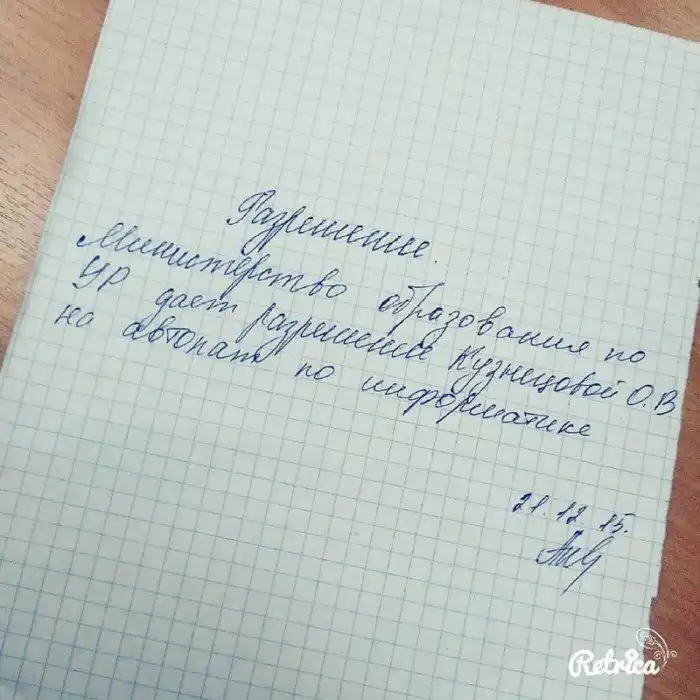 Разрешение.
Министерство образования по
УР дает разрешение Кузнецовой О.В
на автомат по информатике
21.12.15.
Retrica